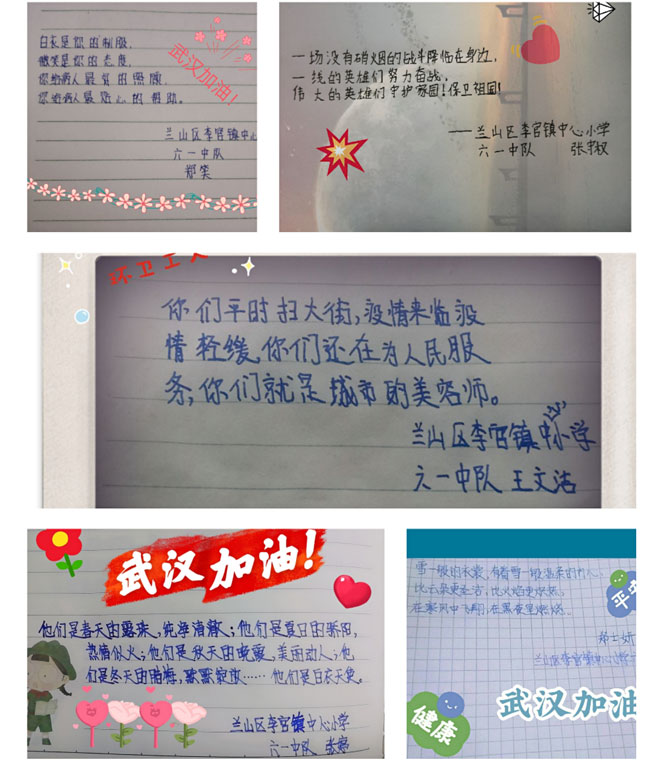 白衣是你的制服,
微笑是你的态度,
你给病人最
你给病人最贴心的帮助。
武汉加油!
兰山区李官镇中心
六一中队
郑棠
一场没有硝烟的战斗降临在身边,
一线的英雄们努力奋战,
伟大的英雄们守护家园!保卫祖国!
——兰山区李官镇中心小学
六一中队
环卫工人
你们平时扫大街,没情来临没
情轻缓,你们还在为人民服
务,你们就是城市的美容师。
兰山区李官镇中心小学
六一中队 王文洁
武汉加油!
他们是春天的露珠,纯净清澈;他们是夏日的骄阳,
热情似火;他们是秋天的晚霞,美丽动人;他
们是冬天的腊梅,默默绽放……他们是白衣天使。
兰山区李官镇中心小学
六一中队 张婷
雪一般的衣裳,有着雪一般
比云朵更
在寒风中飞翔,在黑夜里
兰山区李官镇中心小学
武汉加油
健康